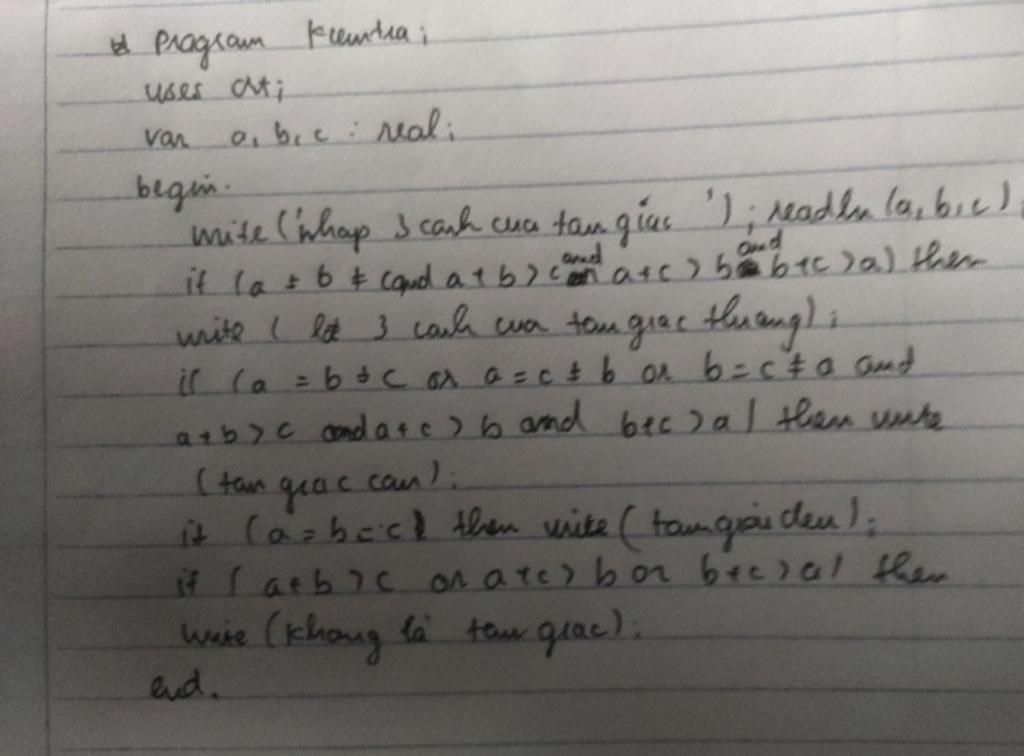 Program Kiemtra;
uses crt;
var a, b, c : real;
begin.
write ('nhap 3 canh cua tam giac '); readln (a, b, c);
if (a ≠ b ≠ c and a + b > c and a + c > b and b + c > a) then
write ( 3 canh cua tam giac thuong);
if (a = b ≠ c or a = c ≠ b or b = c ≠ a and
a + b > c and a + c > b and b + c > a) then write
(tam giac can);
if (a = b = c) then write (tam giac deu);
if (a + b > c or a + c > b or b + c > a) then
write (khong là tam giac);
end.